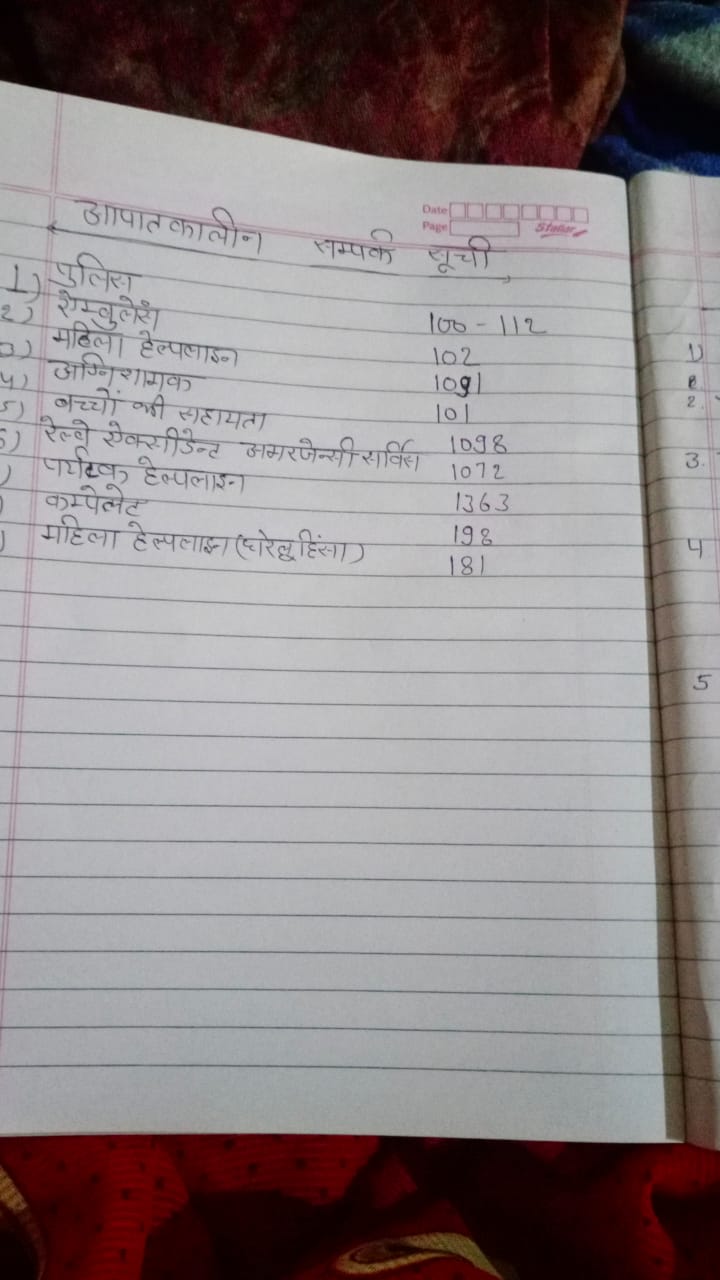 Date
Page
Stellar
आपातकालीन सम्पर्क सूची
1) पुलिस 100 - 112
2) ऐम्बुलेंस 102
3) महिला हेल्पलाइन 1091
4) अग्निशामक 101
5) बच्चों की सहायता 1098
6) रेल्वे ऐक्सीडेन्ट अमरजेन्सी सर्विस 1072
) पर्यटक हेल्पलाइन 1363
) कम्पेलेट 198
) महिला हेल्पलाइन (घरेलू हिंसा) 181
1)
2.
3.
4
5